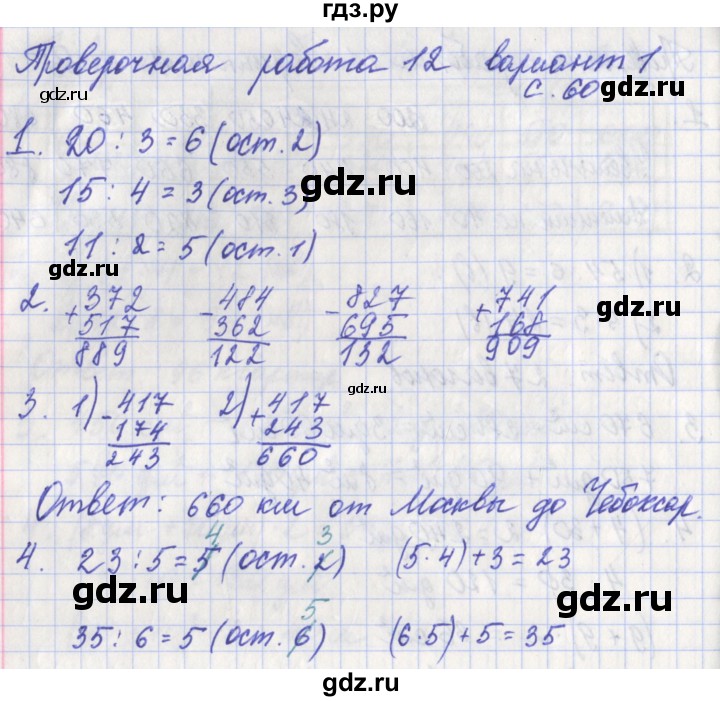 гдз.ру
Проверочная работа 12 вариант 1
с. 60
gdz.ru
1. 20 : 3 = 6 (ост. 2)
15 : 4 = 3 (ост. 3)
gdz.ru
11 : 2 = 5 (ост. 1)
gdz.ru
2. + 372 - 484 - 827 + 741
517 362 695 168
889 122 132 909
gdz.ru
3. 1) - 417 2) + 417
174 243
243 660
gdz.ru
Ответ: 660 км от Москвы до Чебоксар.
4 3
4. 23 : 5 = 5 (ост. 2) (5 · 4) + 3 = 23
gdz.ru
5
35 : 6 = 5 (ост. 6) (6 · 5) + 5 = 35
gdz.ru gdz.ru